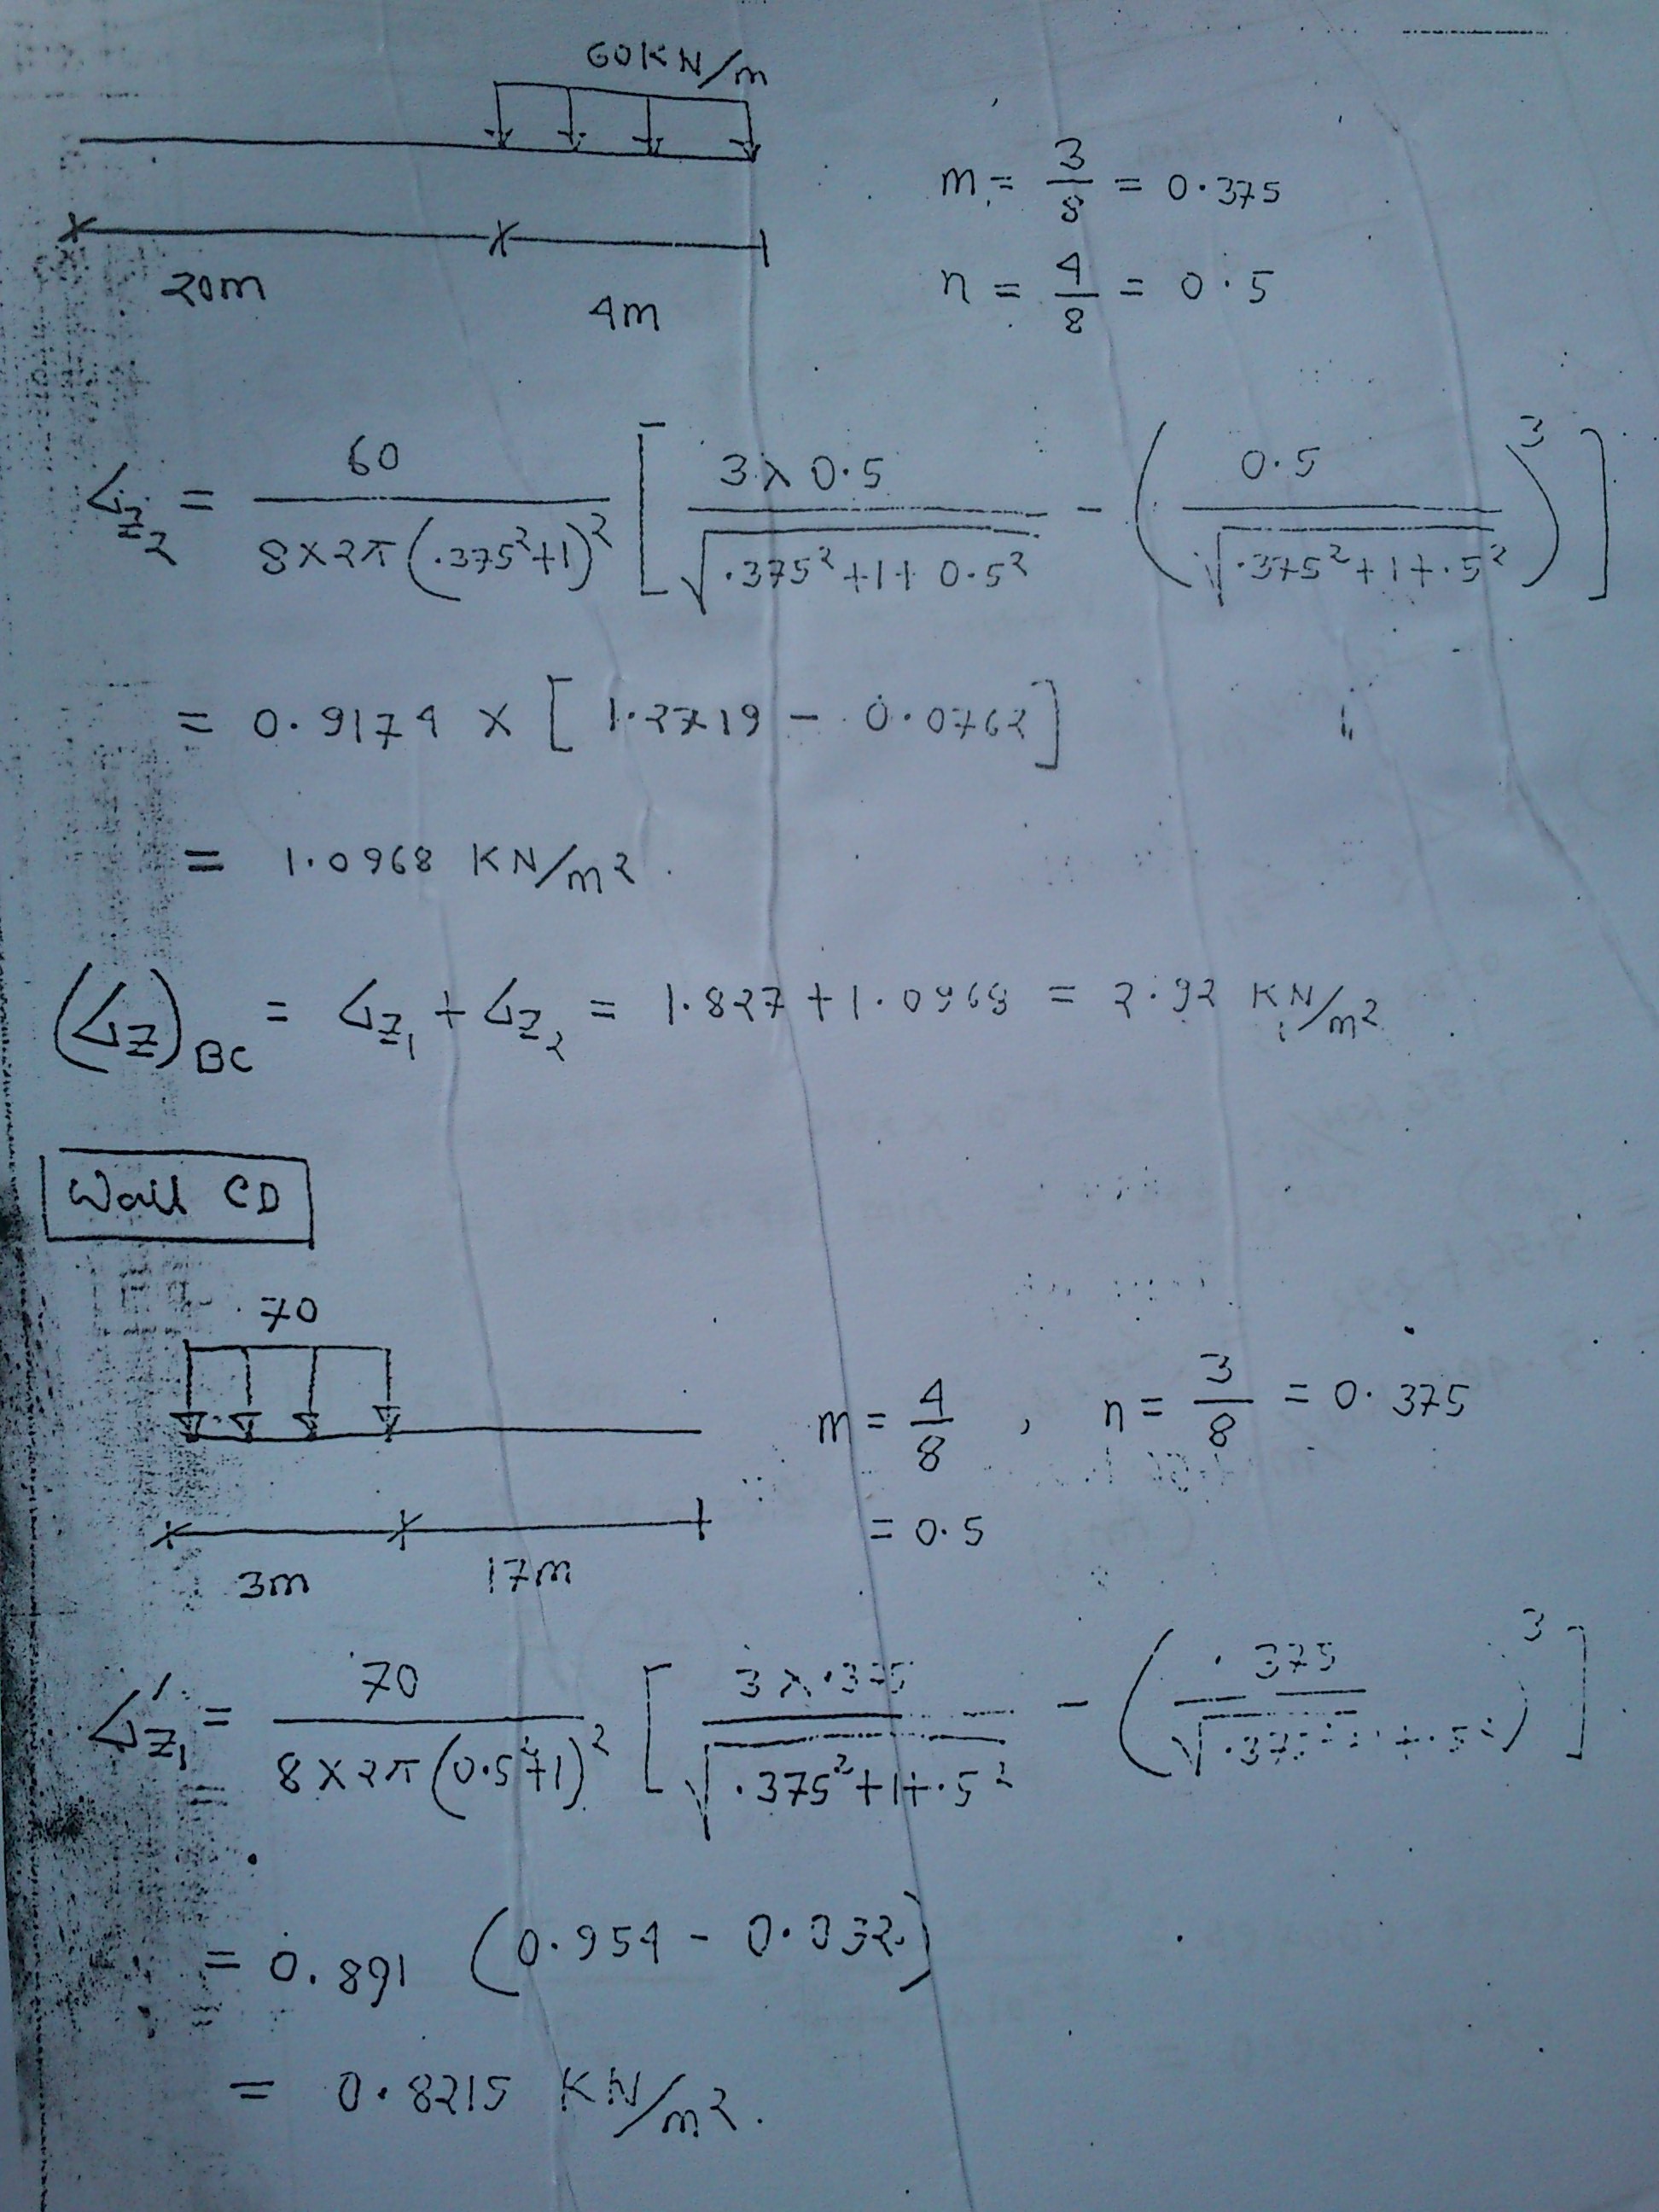 60KN/m
20m
4m
m = 3/8 = 0.375
n = 4/8 = 0.5
σz2 = 60 / 8×2π(.375²+1)² [ 3×0.5 / √.375²+1+0.5² - ( 0.5 / √.375²+1+.5² )³ ]
= 0.9174 × [ 1.2719 - 0.0762 ]
= 1.0968 KN/m².
(σz)BC = σz1 + σz2 = 1.827 + 1.0968 = 2.92 KN/m²
Wall CD
70
3m
17m
m = 4/8 , n = 3/8 = 0.375
= 0.5
σ'z1 = 70 / 8×2π(0.5²+1)² [ 3×.375 / √.375²+1+.5² - ( .375 / √.375²+1+.5² )³ ]
= 0.891 (0.954 - 0.032)
= 0.8215 KN/m².